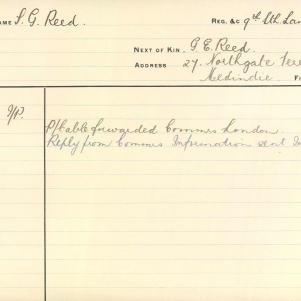 NAME S. G. Reed. REG. &C 9th Lth
NEXT OF KIN G. E. Reed.
ADDRESS 27, Northgate
Medindie.
P/Cable forwarded Commrs London
Reply from Commrs Information sent